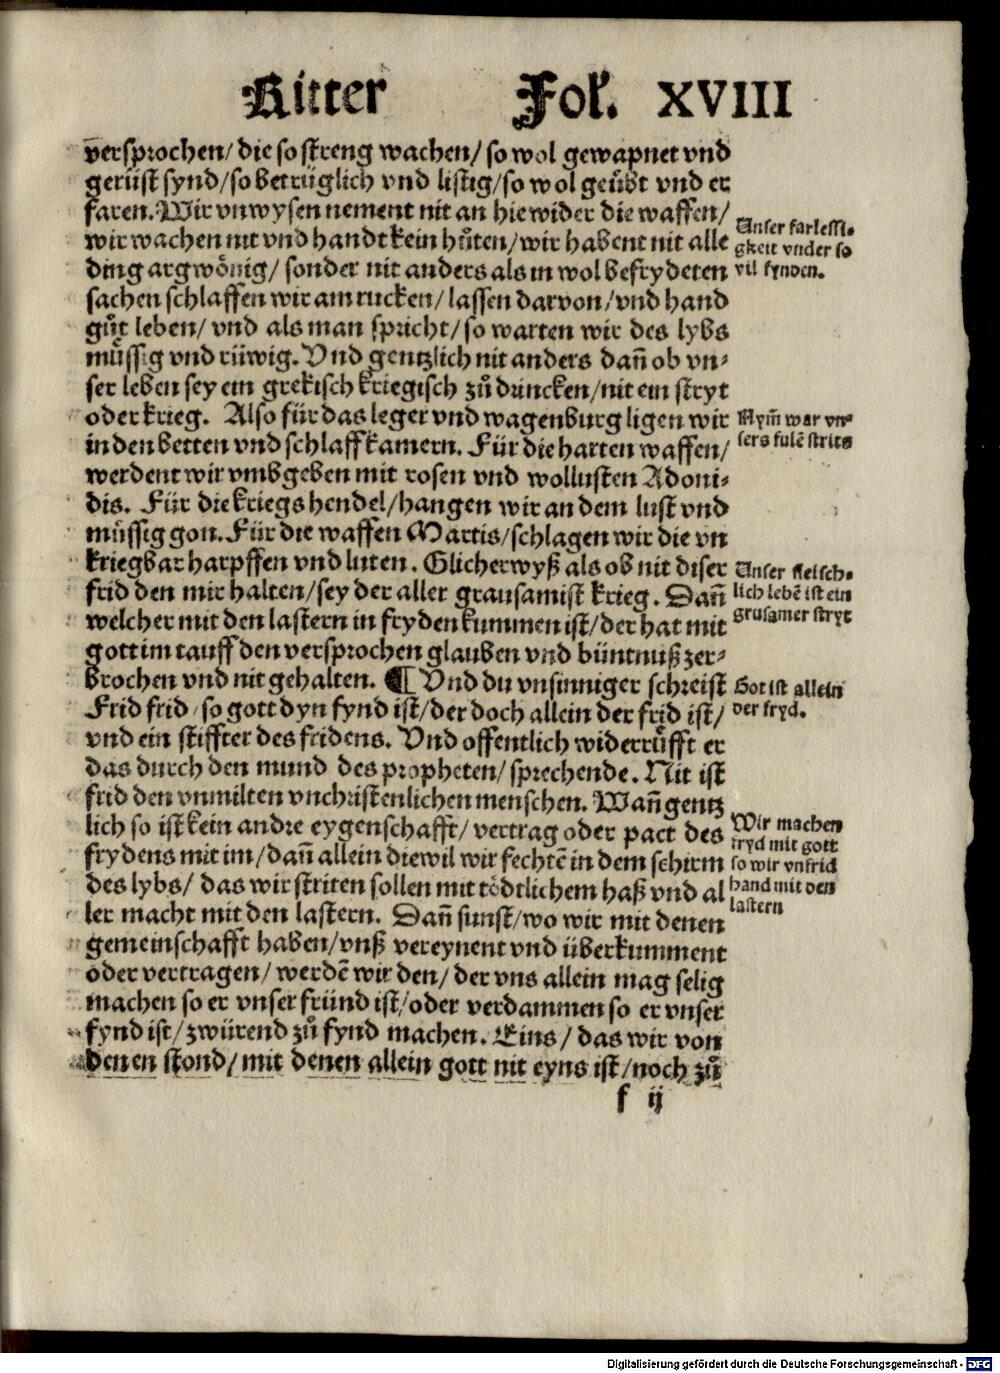 Ritter Fol. XVIII
versprochen/ die so streng wachen/ so wol gewapnet vnd
gerüst synd/ so betrüglich vnd listig/ so wol geübt vnd er
faren. Wir vnwysen nement nit an hie wider die waffen/
wir wachen nit vnd handt kein hůten/ wir habent nit alle
ding argwönig/ sonder nit anders als in wol befrydeten
sachen schlaffen wir am rucken/ lassen darvon/ vnd hand
gůt leben/ vnd als man spricht/ so warten wir des lybs
müssig vnd rüwig. Vnd gentzlich nit anders dañ ob vn-
ser leben sey ein grekisch kriegisch zů drincken/ nit ein stryt
oder krieg. Also für das leger vnd wagenburg ligen wir
in den betten vnd schlaffkamern. Für die harten waffen/
werdent wir vmbgeben mit rosen vnd wollusten Adoni-
dis. Für die kriegs hendel/ hangen wir an dem lust vnd
müssig gon. Für die waffen Martis/ schlagen wir die vn
kriegbar harpffen vnd luten. Glicherwyß als ob nit diser
frid den mir halten/ sey der aller grausamist krieg. Dañ
welcher mit den lastern in fryden kummen ist/ der hat mit
gott im tauff den versprochen glauben vnd büntnuß zer-
brochen vnd nit gehalten. ¶ Vnd du vnsinniger schreist
Frid frid/ so gott dyn fynd ist/ der doch allein der frid ist/
vnd ein stiffter des fridens. Vnd offentlich widerrüfft er
das durch den mund des propheten/ sprechende. Nit ist
frid den vnmilten vnchristenlichen menschen. Wañ gentz
lich so ist kein andre eygenschafft/ vertrag oder pact des
frydens mit im/ dañ allein diewil wir fechtẽ in dem schirm
des lybs/ das wir striten sollen mit tödtlichem haß vnd al
ler macht mit den lastern. Dañ sunst/ wo wir mit denen
gemeinschafft haben/ vnß vereynent vnd überkumment
oder vertragen/ werdẽ wir den/ der vns allein mag selig
machen so er vnser fründ ist/ oder verdammen so er vnser
fynd ist/ zwürend zů fynd machen. Eins/ das wir von
denen stond/ mit denen allein gott nit eyns ist/ noch zů
f ij
Vnser farlessi-
gkeit vnder so
vil fynden.
Nym̃ war vn-
sers fulẽ strits
Vnser fleisch-
lich lebẽ ist ein
grusamer stryt
Got ist allein
der fryd.
Wir machen
fryd mit gott
so wir vnfrid
hand mit den
lastern
Digitalisierung gefördert durch die Deutsche Forschungsgemeinschaft - DFG